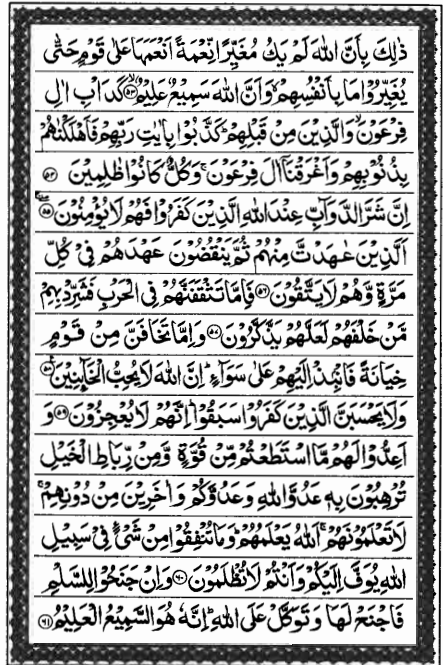 ذٰلِكَ بِاَنَّ اللّٰهَ لَمْ يَكُ مُغَيِّرًا نِّعْمَةً اَنْعَمَهَا عَلٰى قَوْمٍ حَتّٰى
يُغَيِّرُوْا مَا بِاَنْفُسِهِمْ ۙ وَاَنَّ اللّٰهَ سَمِيْعٌ عَلِيْمٌ ۙ‏﴿۵۳﴾ كَدَاْبِ اٰلِ
فِرْعَوْنَ ۙ وَالَّذِيْنَ مِنْ قَبْلِهِمْ ؕ كَذَّبُوْا بِاٰيٰتِ رَبِّهِمْ فَاَهْلَكْنٰهُمْ
بِذُنُوْبِهِمْ وَاَغْرَقْنَاۤ اٰلَ فِرْعَوْنَ ۚ وَكُلٌّ كَانُوْا ظٰلِمِيْنَ ﴿۵۴﴾
اِنَّ شَرَّ الدَّوَآبِّ عِنْدَ اللّٰهِ الَّذِيْنَ كَفَرُوْا فَهُمْ لَا يُؤْمِنُوْنَ ﴿۵۵﴾
اَلَّذِيْنَ عٰهَدْتَّ مِنْهُمْ ثُمَّ يَنْقُضُوْنَ عَهْدَهُمْ فِىْ كُلِّ
مَرَّةٍ وَّهُمْ لَا يَتَّقُوْنَ ﴿۵۶﴾ فَاِمَّا تَثْقَفَنَّهُمْ فِى الْحَرْبِ فَشَرِّدْ بِهِمْ
مَّنْ خَلْفَهُمْ لَعَلَّهُمْ يَذَّكَّرُوْنَ ﴿۵۷﴾ وَاِمَّا تَخَافَنَّ مِنْ قَوْمٍ
خِيَانَةً فَانْۢبِذْ اِلَيْهِمْ عَلٰى سَوَآءٍ ؕ اِنَّ اللّٰهَ لَا يُحِبُّ الْخَآئِنِيْنَ ﴿۵۸﴾
وَلَا يَحْسَبَنَّ الَّذِيْنَ كَفَرُوْا سَبَقُوْا ؕ اِنَّهُمْ لَا يُعْجِزُوْنَ ﴿۵۹﴾ وَ
اَعِدُّوْا لَهُمْ مَّا اسْتَطَعْتُمْ مِّنْ قُوَّةٍ وَّمِنْ رِّبَاطِ الْخَيْلِ
تُرْهِبُوْنَ بِهٖ عَدُوَّ اللّٰهِ وَعَدُوَّكُمْ وَاٰخَرِيْنَ مِنْ دُوْنِهِمْ ۚ
لَا تَعْلَمُوْنَهُمْ ۚ اَللّٰهُ يَعْلَمُهُمْ ؕ وَمَا تُنْفِقُوْا مِنْ شَىْءٍ فِىْ سَبِيْلِ
اللّٰهِ يُوَفَّ اِلَيْكُمْ وَاَنْتُمْ لَا تُظْلَمُوْنَ ﴿۶۰﴾ وَاِنْ جَنَحُوْا لِلسَّلْمِ
فَاجْنَحْ لَهَا وَتَوَكَّلْ عَلَى اللّٰهِ ؕ اِنَّهٗ هُوَ السَّمِيْعُ الْعَلِيْمُ ﴿۶۱﴾